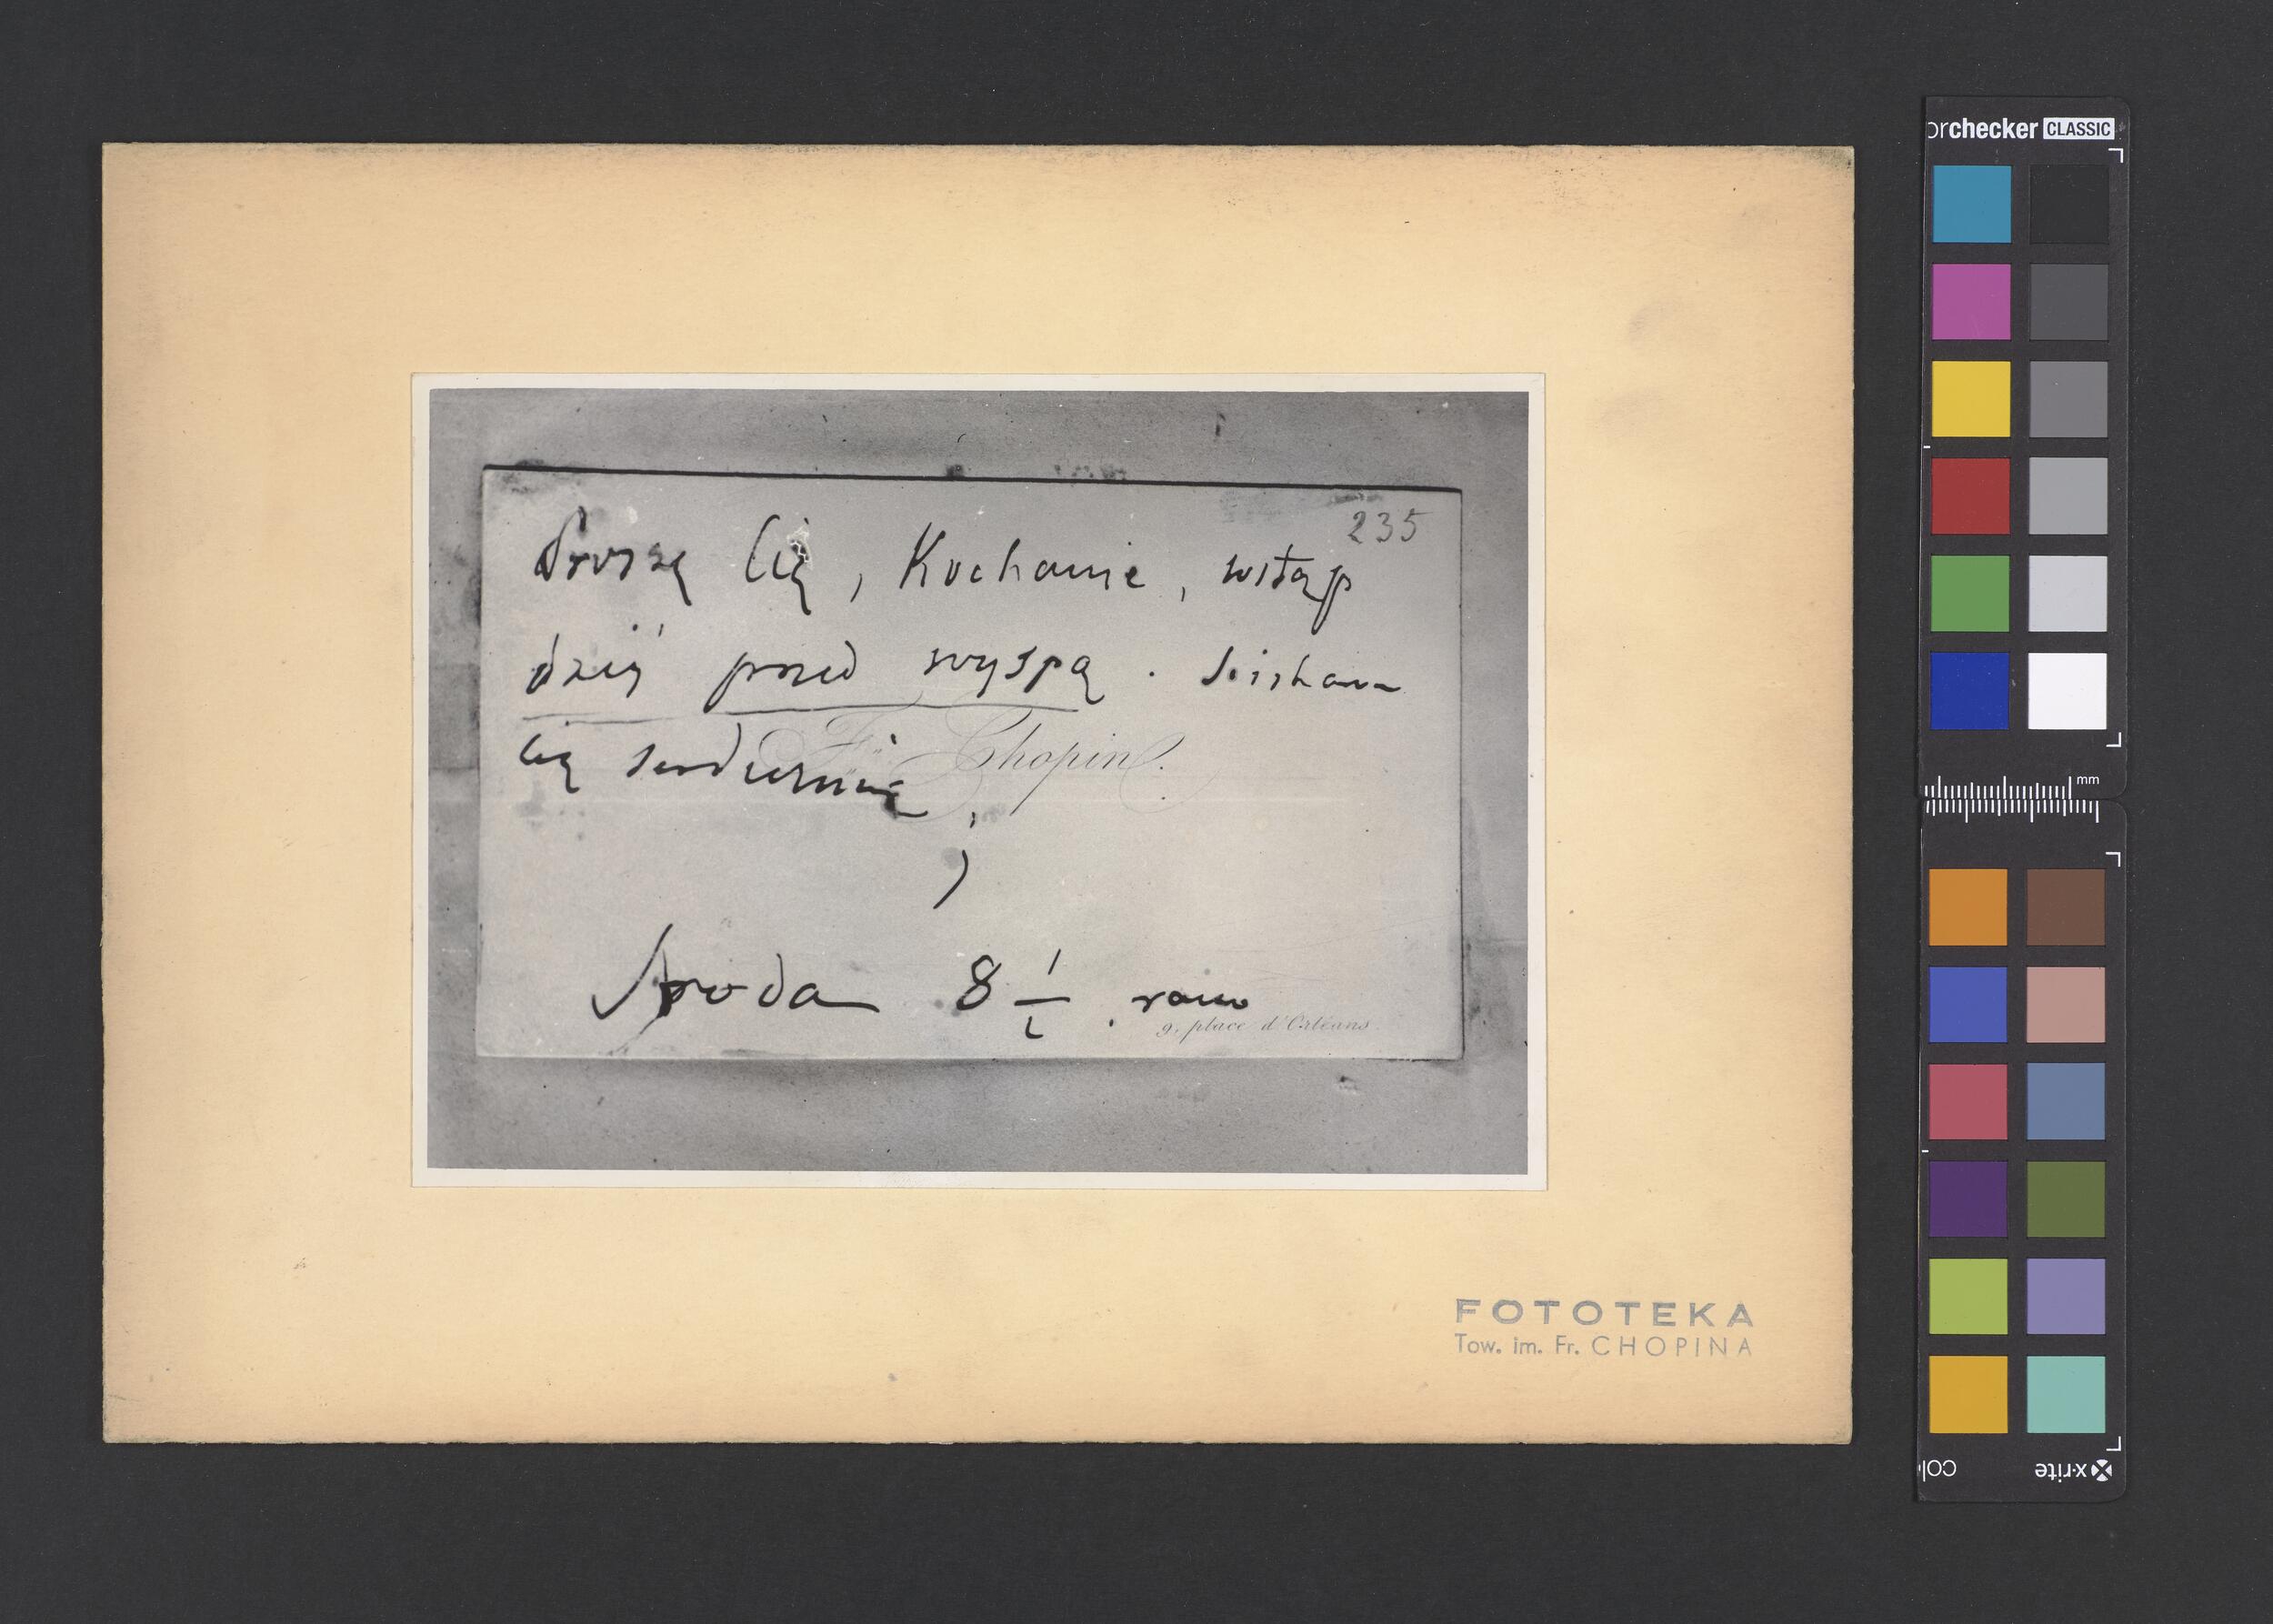 235
Proszę Cię, Kochanie, wstąp
dziś przed wyspą. Sciskam
Cię serdecznie
Fr. Chopin.
Sroda 8 1/2 . rano
9, place d'Orléans
FOTOTEKA
Tow. im. Fr. CHOPINA
orchecker CLASSIC
mm
x-rite
colo